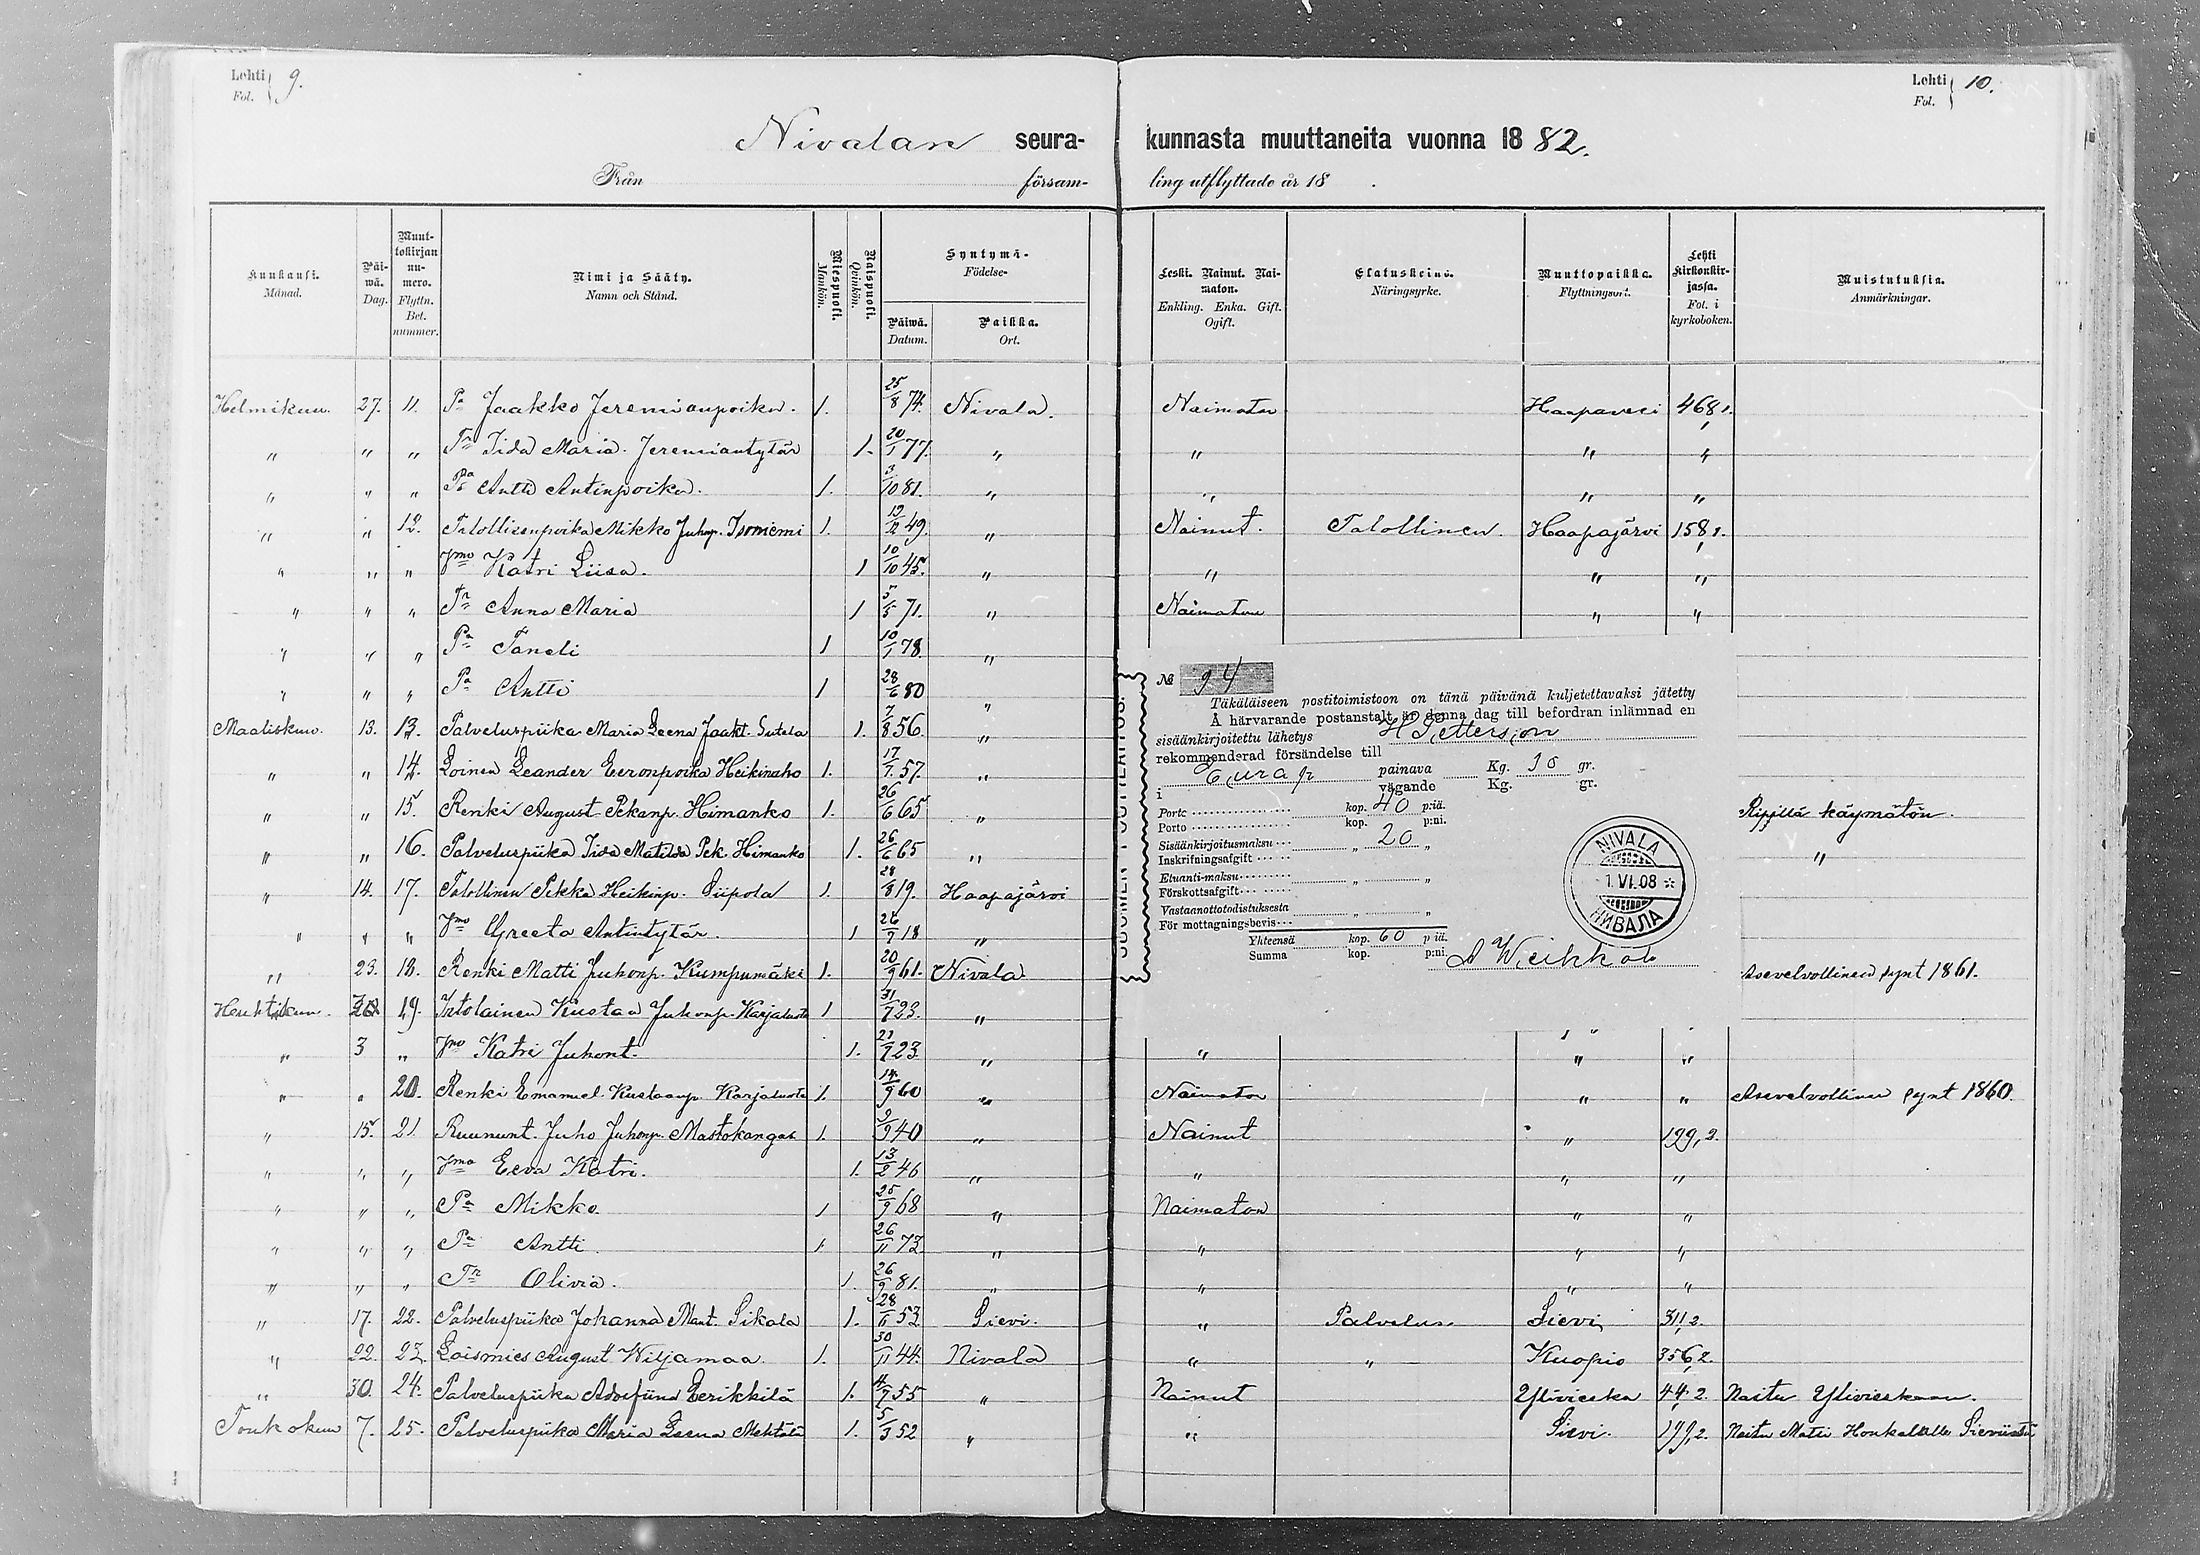 Lehti 9.
Fol.
Lehti 10.
Fol.
Nivalan seura- kunnasta muuttaneita vuonna 18 82.
Från församling utflyttade år 18 .
Kuukausi. Månad.
Päiwä. Dag.
Muuttokirjan numero. Flyttn. Bet. nummer.
Nimi ja Sääty. Namn och Stånd.
Miespuoli. Mankön.
Naispuoli. Qvinkön.
Syntymä- Födelse-
Päiwä. Datum.
Paikka. Ort.
Leski. Nainut. Naimaton. Enkling. Enka. Gift. Ogift.
Elatuskeino. Näringsyrke.
Muuttopaikka. Flyttningsort.
Lehti Kirkonkirjassa. Fol. i kyrkoboken.
Muistutuksia. Anmärkningar.
Helmikuu. 27. 11. Pa Jaakko Jeremianpoika. 1. 25/8 74. Nivala. Naimaton Haapavesi 468,1.
" " " Tr Iida Maria Jeremiantytär 1. 20/1 77. " " " "
" " " Pa Antti Antinpoika. 1. 3/10 81. " " " "
" " 12. Talollisenpoika Mikko Juhonp. Isoniemi 1. 12/2 49. " Nainut. Talollinen. Haapajärvi 158,1.
" " " Vmo Katri Liisa. 1 10/10 45. " " " "
" " " Tr Anna Maria 1 5/5 71. " Naimaton " "
" " " Pa Taneli 1 10/1 78. "
" " " Pa Antti 1 28/6 80 "
Maaliskuu. 13. 13. Palveluspiika Maria Leena Jaakt. Sutela 1. 7/8 56. "
" " 14. Loinen Leander Eeronpoika Heikinaho 1. 17/7 57. "
" " 15. Renki August Pekanp. Himanko 1. 26/6 65 " Ripillä käymätön.
" " 16. Palveluspiika Iida Matilda Pek. Himanko 1. 26/6 65 " "
" 14. 17. Talollinen Pekka Heikinp. Piipola 1. 28/8 19. Haapajärvi
" " " Vmo Greeta Antintytär. 1 26/7 18 "
" 23. 18. Renki Matti Juhonp. Kumpumäki 1. 20/9 61. Nivala Asevelvollinen synt 1861.
Huhtikuu. 19. Itolainen Kustaa Juhonp. Karjaluoto 1 31/7 23. " "
" 3 " Vmo Katri Juhont. 1. 21/7 23. " " " "
" " 20. Renki Emanuel Kustaanp. Karjaluoto 1. 14/9 60 " Naimaton " " Asevelvollinen synt 1860.
" 15. 21. Ruununt. Juho Juhonp. Mastokangas 1. 2/9 40 " Nainut " 129,2.
" " " Vmo Eeva Katri. 1. 13/2 46 " " " "
" " " Pa Mikko. 1 25/9 68 " Naimaton " "
" " " Pa Antti. 1. 26/11 73. " " " "
" " " Tr Olivia. 1. 26/9 81. " " " "
" 17. 22. Palveluspiika Johanna Mant. Sikala 1. 28/6 53 Sievi. " Palvelus. Sievi 311,2.
" 22. 23. Loismies August Wiljamaa. 1. 30/11 44. Nivala " " Kuopio 356,2.
" 30. 24. Palveluspiika Adolfiina Eerikkilä 1. 4/7 55 " Nainut Ylivieska 44,2. Naitu Ylivieskaan.
Toukokuu 7. 25. Palveluspiika Maria Leena Mehtälä 1. 5/3 52 " " Sievi. 199,2. Naitu Matti Honkalalle Sievistä
№ 94
Täkäläiseen postitoimistoon on tänä päivänä kuljetettavaksi jätetty
Å härvarande postanstalt är denna dag till befordran inlämnad en
sisäänkirjoitettu lähetys H Petterson
rekommenderad försändelse till
i Eurajo painava vägande Kg. gr.
Kg. gr.
Porto kop. 40 p:iä.
Porto kop. p:ni.
Sisäänkirjoitusmaksu „ 20 „
Inskrifningsafgift
Etuanti-maksu „ „
Förskottsafgift
Vastaanottotodistuksesta „ „
För mottagningsbevis
Yhteensä kop. 60 p iä.
Summa kop. p:ni.
NIVALA
1.VI.08
НИВАЛА